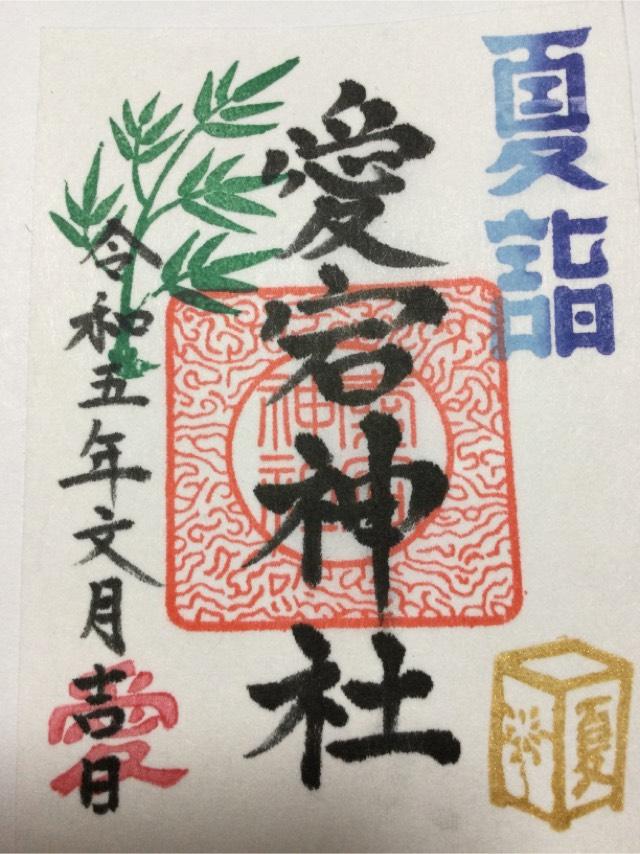 夏詣
愛宕神社
令和五年文月吉日
愛
夏